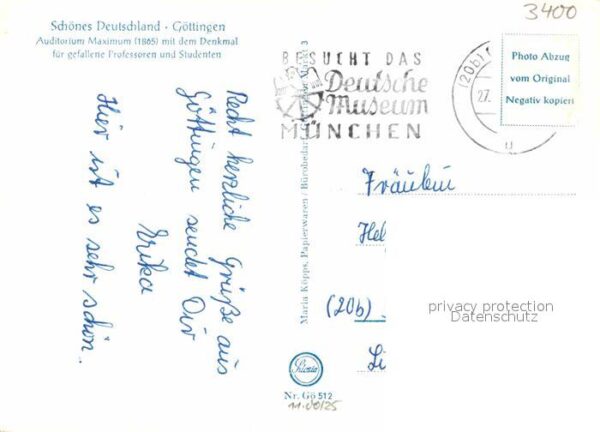 3400
Schönes Deutschland · Göttingen
Auditorium Maximum (1865) mit dem Denkmal
für gefallene Professoren und Studenten
BESUCHT DAS
Deutsche
Museum
MÜNCHEN
(20b)
27.
u
Photo Abzug
vom Original
Negativ kopiert
Recht herzliche Grüße aus
Göttingen sendet Dir
Erika
Hier ist es sehr schön.
Maria Köpps, Papierwaren / Bürobedarf, Markt 3
Fräulein
Hel
(20b)
Li
privacy protection
Datenschutz
Nr. Gö 512